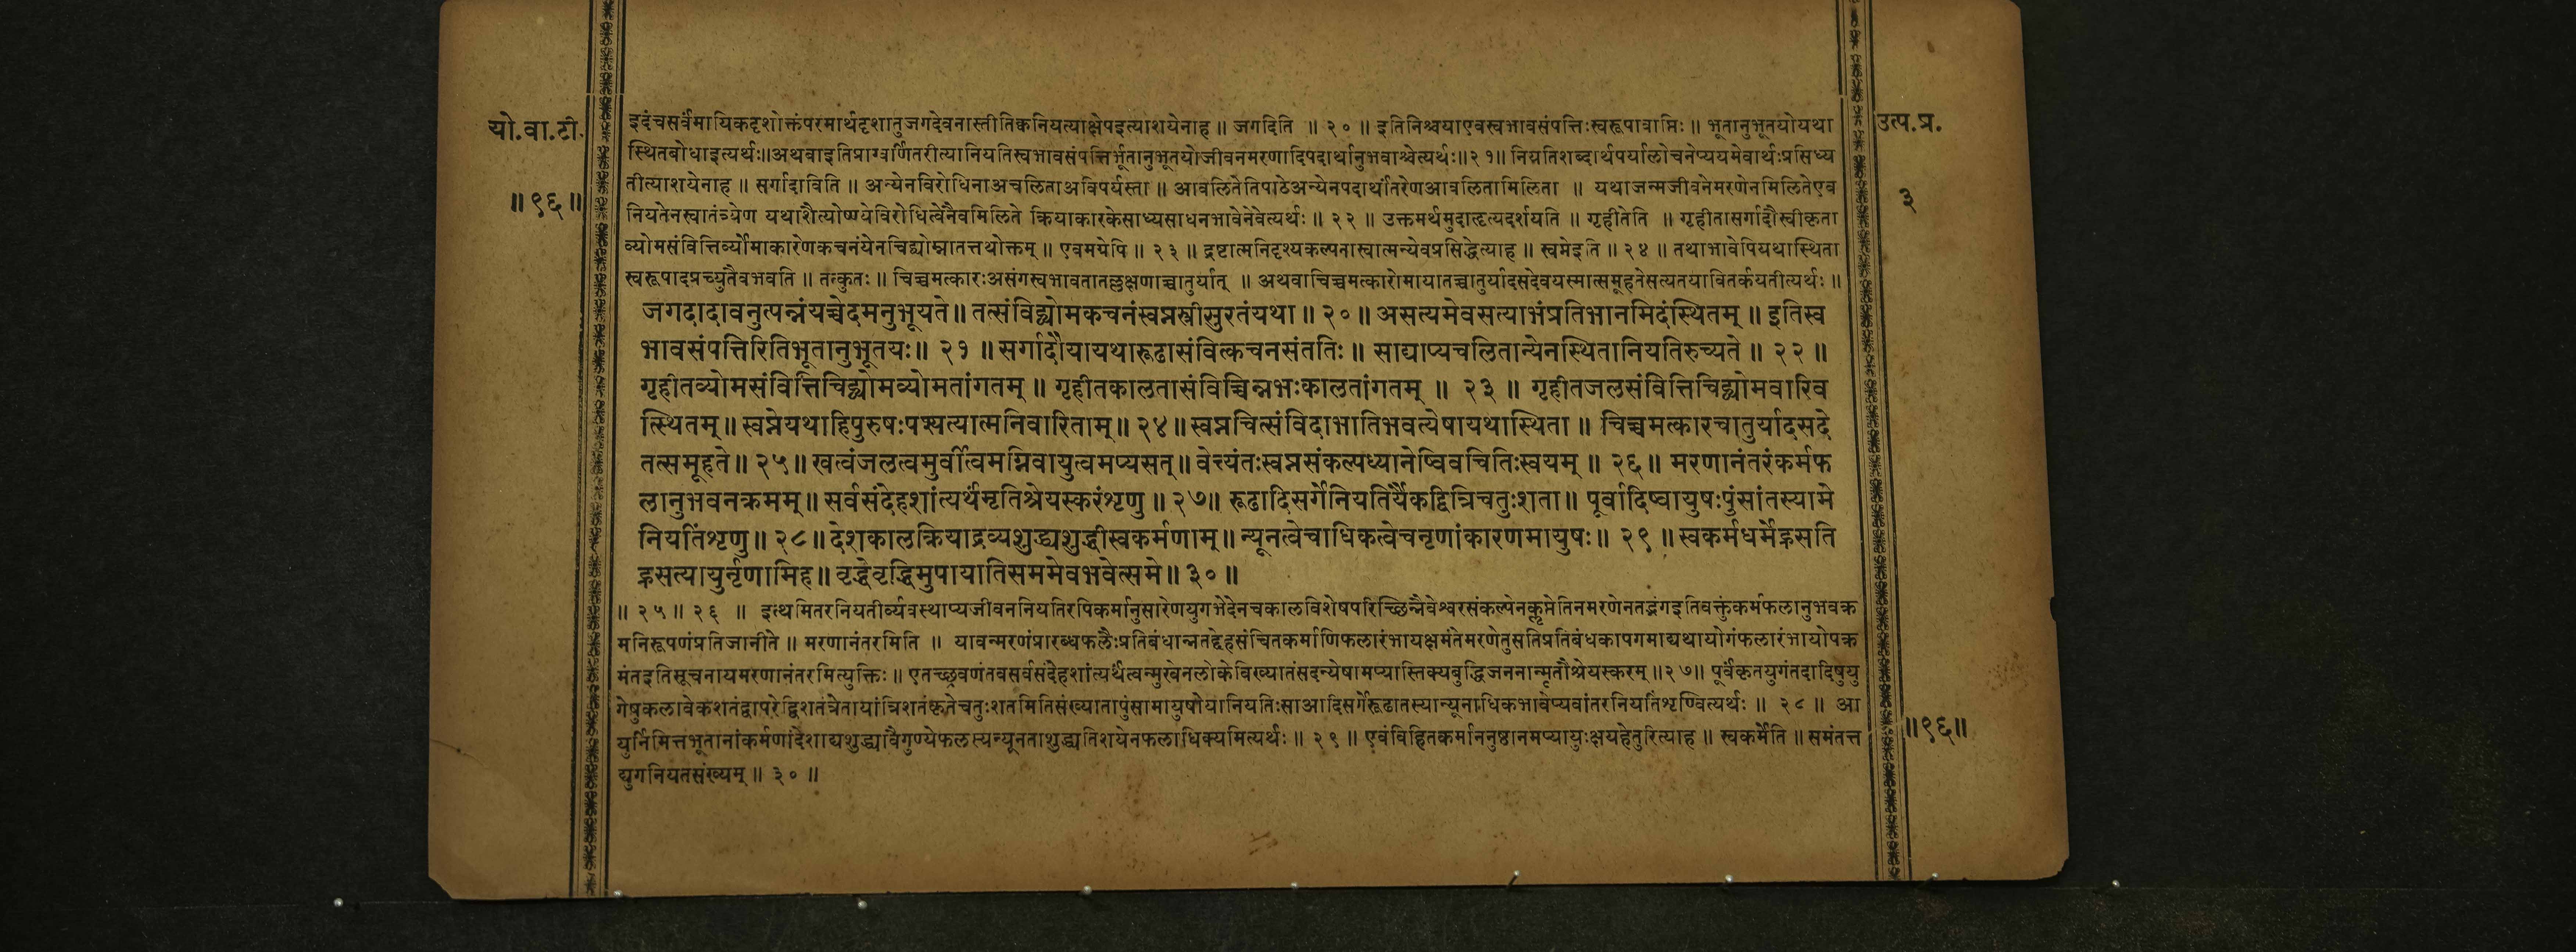 यो.वा.टी.
॥९६॥
इदंचसर्वंमायिकदृशोक्तंपरमार्थदृशातुजगदेवनास्तीतिक्वनियत्याक्षेपइत्याशयेनाह ॥ जगदिति ॥ २० ॥ इतिनिश्चयाएवस्वभावसंपत्तिःस्वरूपावाप्तिः ॥ भूतानुभूतयोयथा
स्थितबोधाइत्यर्थः॥अथवाइतिप्राग्वर्णितरीत्यानियतिस्वभावसंपत्तिर्भूतानुभूतयोजीवनमरणादिपदार्थानुभवाश्चेत्यर्थः॥२१॥ नियतिशब्दार्थपर्यालोचनेप्ययमेवार्थःप्रसिध्य
तीत्याशयेनाह ॥ सर्गादाविति ॥ अन्येनविरोधिनाअचलिताअविपर्यस्ता ॥ आवलितेतिपाठेअन्येनपदार्थांतरेणआवलितामिलिता ॥ यथाजन्मजीवनेमरणेनमिलितेएव
नियतेनस्वातंत्र्येण यथाशैत्योष्ण्येविरोधित्वेनैवमिलिते क्रियाकारकेसाध्यसाधनभावेनेवेत्यर्थः ॥ २२ ॥ उक्तमर्थमुदाहृत्यदर्शयति ॥ गृहीतेति ॥ गृहीतासर्गादौस्वीकृता
व्योमसंवित्तिर्व्योमाकारेणकचनंयेनचिद्व्योम्नातत्तथोक्तम् ॥ एवमग्रेपि ॥ २३ ॥ द्रष्टात्मनिदृश्यकल्पनास्वात्मन्येवप्रसिद्धेत्याह ॥ स्वप्नेइति ॥ २४ ॥ तथाभावेपियथास्थिता
स्वरूपादप्रच्युतैवभवति ॥ तत्कुतः ॥ चिच्चमत्कारःअसंगस्वभावतातल्लक्षणाच्चातुर्यात् ॥ अथवाचिच्चमत्कारोमायातच्चातुर्यादसदेवयस्मात्समूहतेसत्यतयावितर्कयतीत्यर्थः ॥
जगदादावनुत्पन्नंयच्चेदमनुभूयते॥ तत्संविद्व्योमकचनंस्वप्नस्त्रीसुरतंयथा॥ २० ॥ असत्यमेवसत्याभंप्रतिभानमिदंस्थितम् ॥ इतिस्व
भावसंपत्तिरितिभूतानुभूतयः॥ २१ ॥ सर्गादौयायथारूढासंवित्कचनसंततिः ॥ साद्याप्यचलितान्येनस्थितानियतिरुच्यते ॥ २२ ॥
गृहीतव्योमसंवित्तिचिद्व्योमव्योमतांगतम् ॥ गृहीतकालतासंविच्चिन्नभःकालतांगतम् ॥ २३ ॥ गृहीतजलसंवित्तिचिद्व्योमवारिव
त्स्थितम् ॥ स्वप्नेयथाहिपुरुषःपश्यत्यात्मनिवारिताम् ॥ २४ ॥ स्वप्नचित्संविदाभातिभवत्येषायथास्थिता ॥ चिच्चमत्कारचातुर्यादसदे
तत्समूहते॥ २५॥ खत्वंजलत्वमुर्वीत्वमग्निवायुत्वमप्यसत्॥ वेत्त्यंतःस्वप्नसंकल्पध्यानेष्विवचितिःस्वयम् ॥ २६॥ मरणानंतरंकर्मफ
लानुभवनक्रमम्॥ सर्वसंदेहशांत्यर्थंमृतिश्रेयस्करंशृणु ॥ २७॥ रूढादिसर्गेनियतिर्यैकद्वित्रिचतुःशता॥ पूर्वादिष्वायुषःपुंसांतस्यामे
नियतिंशृणु॥ २८॥ देशकालक्रियाद्रव्यशुद्ध्यशुद्धीस्वकर्मणाम्॥ न्यूनत्वेचाधिकत्वेचनृणांकारणमायुषः॥ २९ ॥ स्वकर्मधर्मेह्रसति
ह्रसत्यायुर्नृणामिह॥ वृद्धेवृद्धिमुपायातिसममेवभवेत्समे॥ ३० ॥
॥ २५ ॥ २६ ॥ इत्थमितरनियतीर्व्यवस्थाप्यजीवननियतिरपिकर्मानुसारेणयुगभेदेनचकालविशेषपरिच्छिन्नैवेश्वरसंकल्पेनक्लृप्तेतिनमरणेनतद्भंगइतिवक्तुंकर्मफलानुभवक्र
मनिरूपणंप्रतिजानीते ॥ मरणानंतरमिति ॥ यावन्मरणंप्रारब्धफलैःप्रतिबंधान्नतद्देहसंचितकर्माणिफलारंभायक्षमंतेमरणेतुसतिप्रतिबंधकापगमाद्यथायोगंफलारंभायोपक्र
मंतइतिसूचनायमरणानंतरमित्युक्तिः ॥ एतच्छ्रवणंतवसर्वसंदेहशांत्यर्थंत्वन्मुखेनलोकेविख्यातंसदन्येषामप्यास्तिक्यबुद्धिजननान्मृतौश्रेयस्करम् ॥२७॥ पूर्वंकृतयुगंतदादिषुयु
गेषुकलावेकशतंद्वापरेद्विशतंत्रेतायांत्रिशतंकृतेचतुःशतमितिसंख्यातापुंसामायुषोयानियतिःसाआदिसर्गेरूढातस्यान्यूनाधिकभावेप्यवांतरनियतिंशृण्वित्यर्थः ॥ २८ ॥ आ
युर्निमित्तभूतानांकर्मणांदेशाद्यशुद्ध्यावैगुण्येफलस्यन्यूनताशुद्ध्यतिशयेनफलाधिक्यमित्यर्थः ॥ २९ ॥ एवंविहितकर्माननुष्ठानमप्यायुःक्षयहेतुरित्याह ॥ स्वकर्मेति ॥ समंतत्त
द्युगनियतसंख्यम् ॥ ३० ॥
उत्प.प्र.
३
॥९६॥